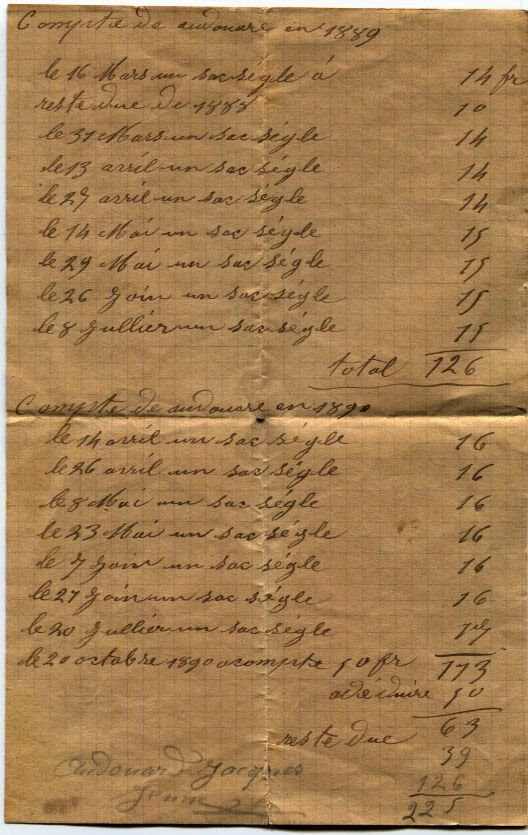 Compte de audouare en 1889
le 16 Mars un sac ségle á 14 fr
reste due de 1888 10
le 31 Mars un sac ségle 14
le 13 avril un sac ségle 14
le 27 avril un sac ségle 14
le 14 Mai un sac ségle 15
le 29 Mai un sac ségle 15
le 26 Join un sac ségle 15
le 8 Jullier un sac ségle 15
total 126
Compte de audouare en 1890
le 14 avril un sac ségle 16
le 26 avril un sac ségle 16
le 8 Mai un sac ségle 16
le 23 Mai un sac ségle 16
le 7 Join un sac ségle 16
le 27 Join un sac ségle 16
le 20 Jullier un sac ségle 17
le 20 octobre 1890 acompte 50 fr 113
a déduire 50
reste due 63
39
126
225
Audouard Jacques